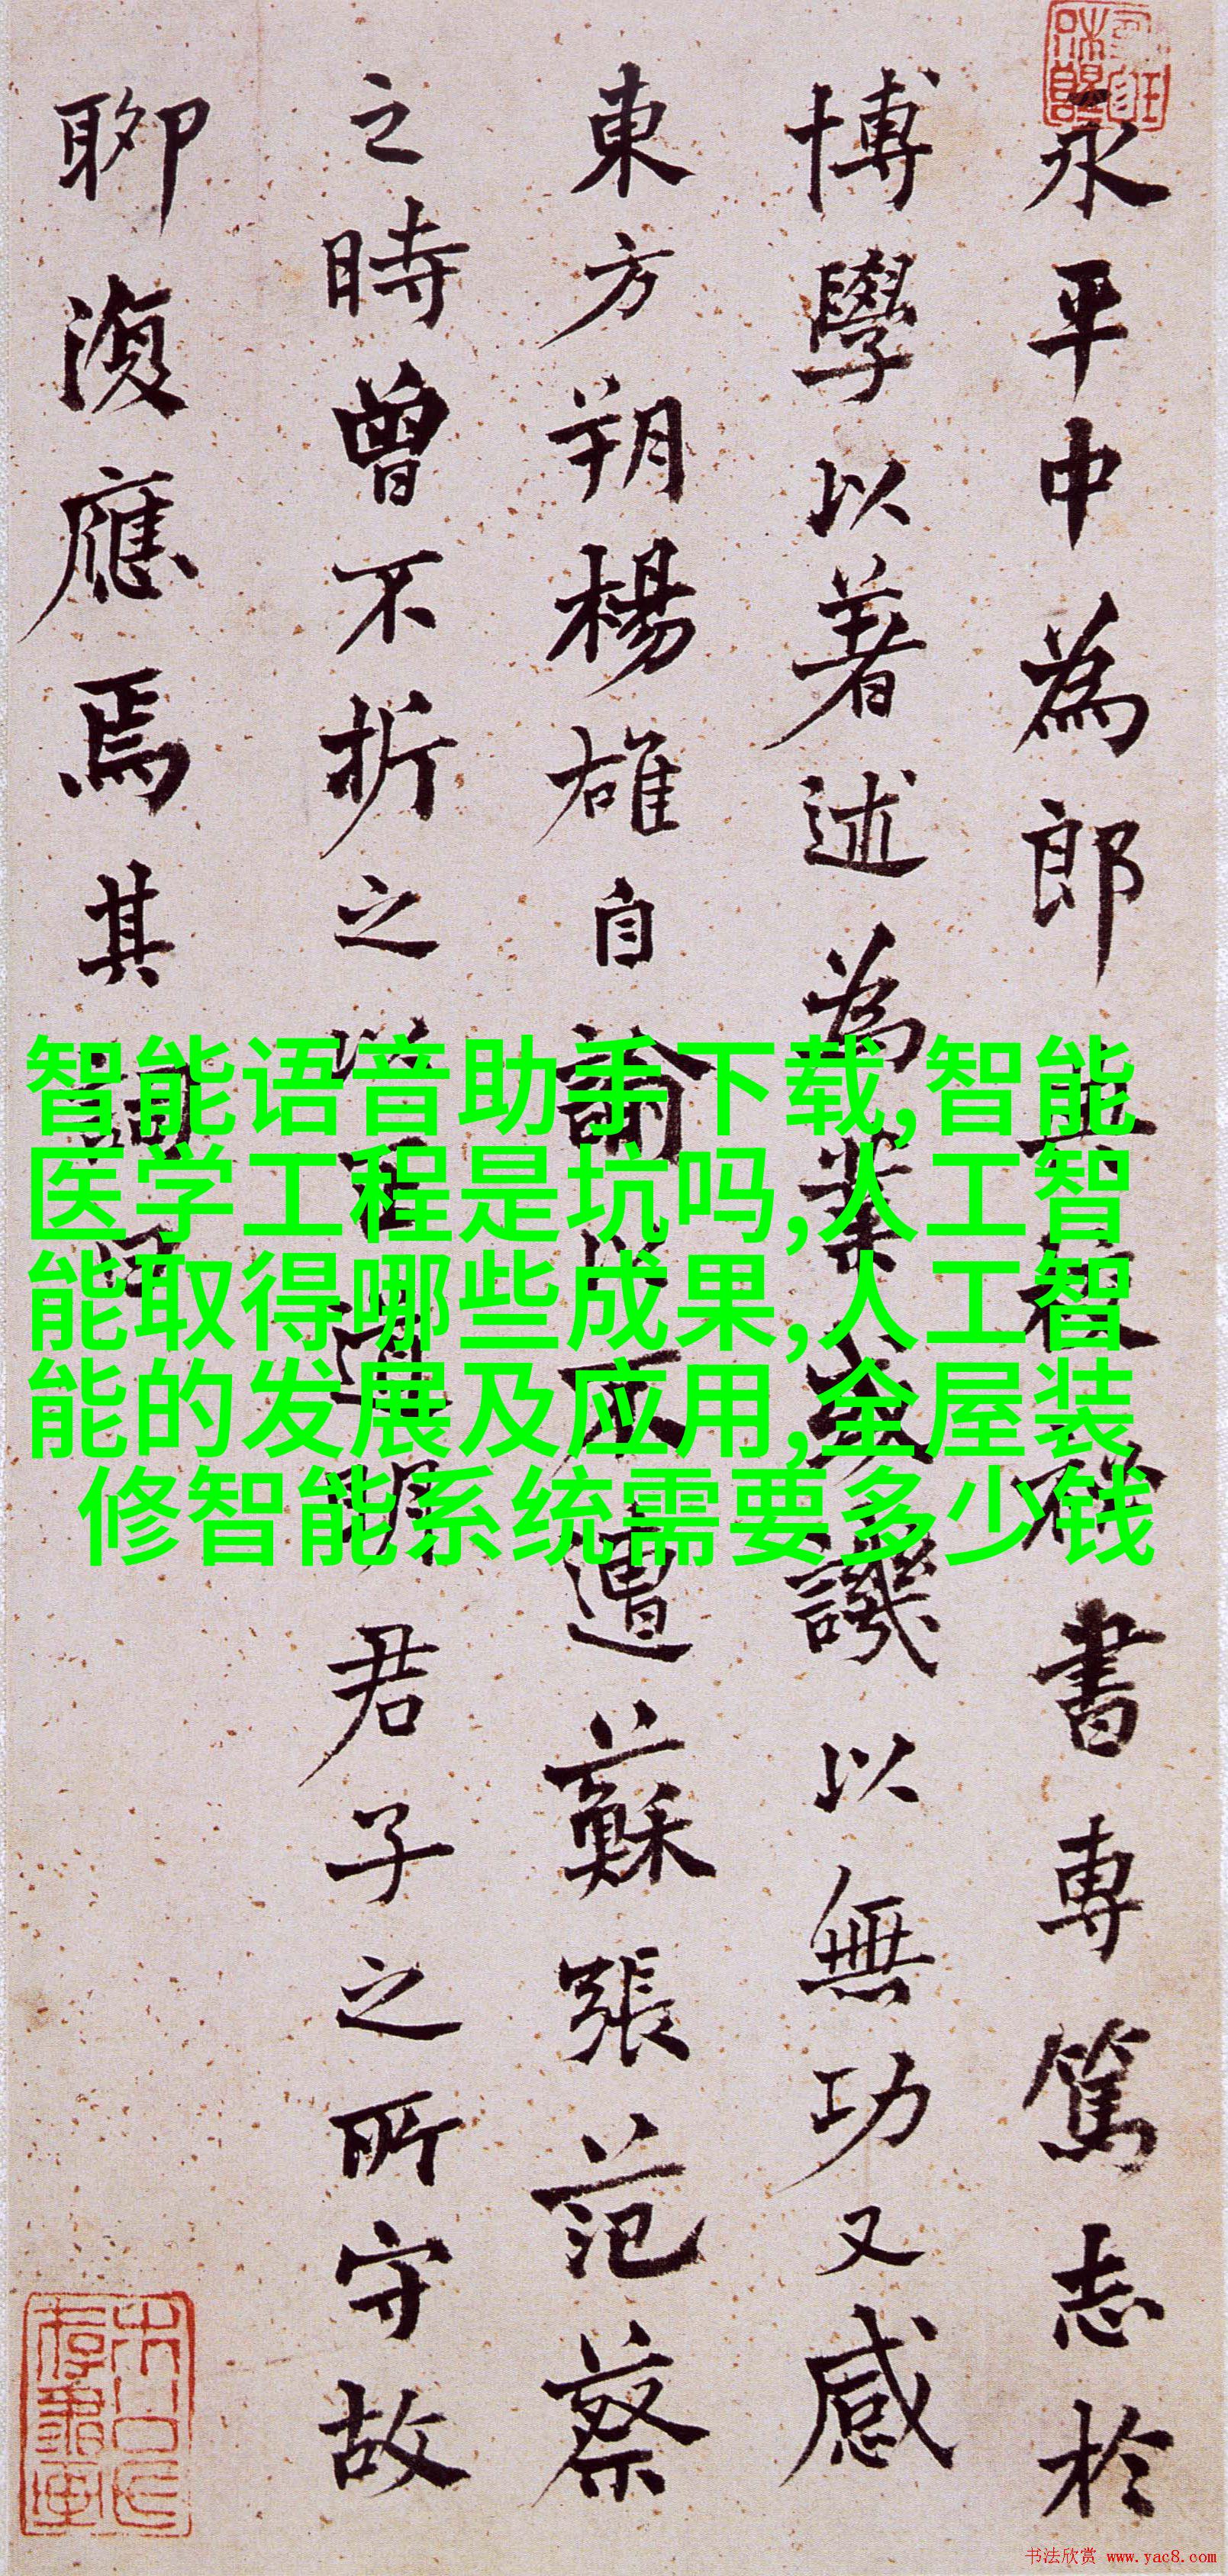 永平中為郎典校祕書專篤志於
博學以著述為業或譏以無功又感
東方朔楊雄自論以不遭蘇張范蔡
之時曾不折之以正道明君子之所守故
聊復應焉其詞曰
智能语音助手下载,智能
医学工程是坑吗,人工智
能取得哪些成果,人工智
能的发展及应用,全屋装
修智能系统需要多少钱
书法欣赏 www.yac8.com